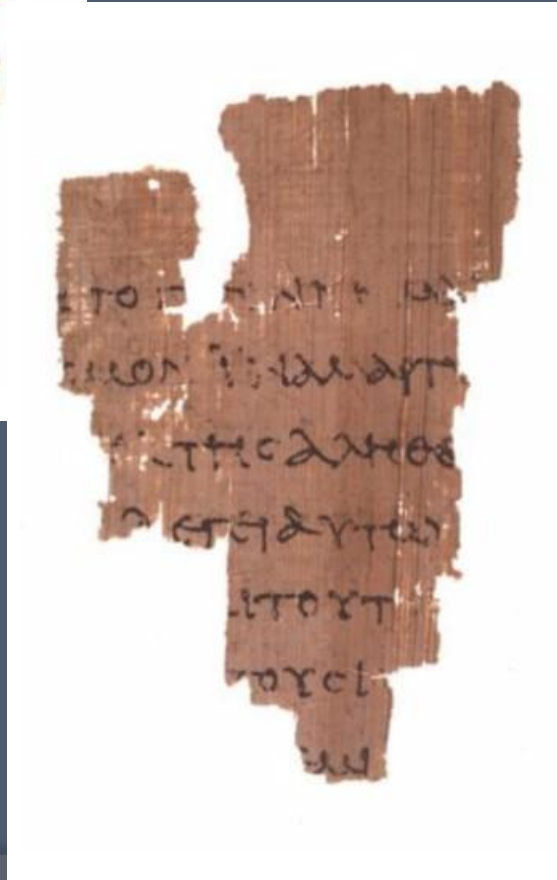 ΤΟ Γ
ϹΜΟΝ ΙΝΑ ΜΑΡΤ
ΤΗϹ ΑΛΗΘΕ
ΛΕΓΕΙ ΑΥΤΩ
ΑΙ ΤΟΥΤ
ΤΟΥϹ Ι
ΜΙ